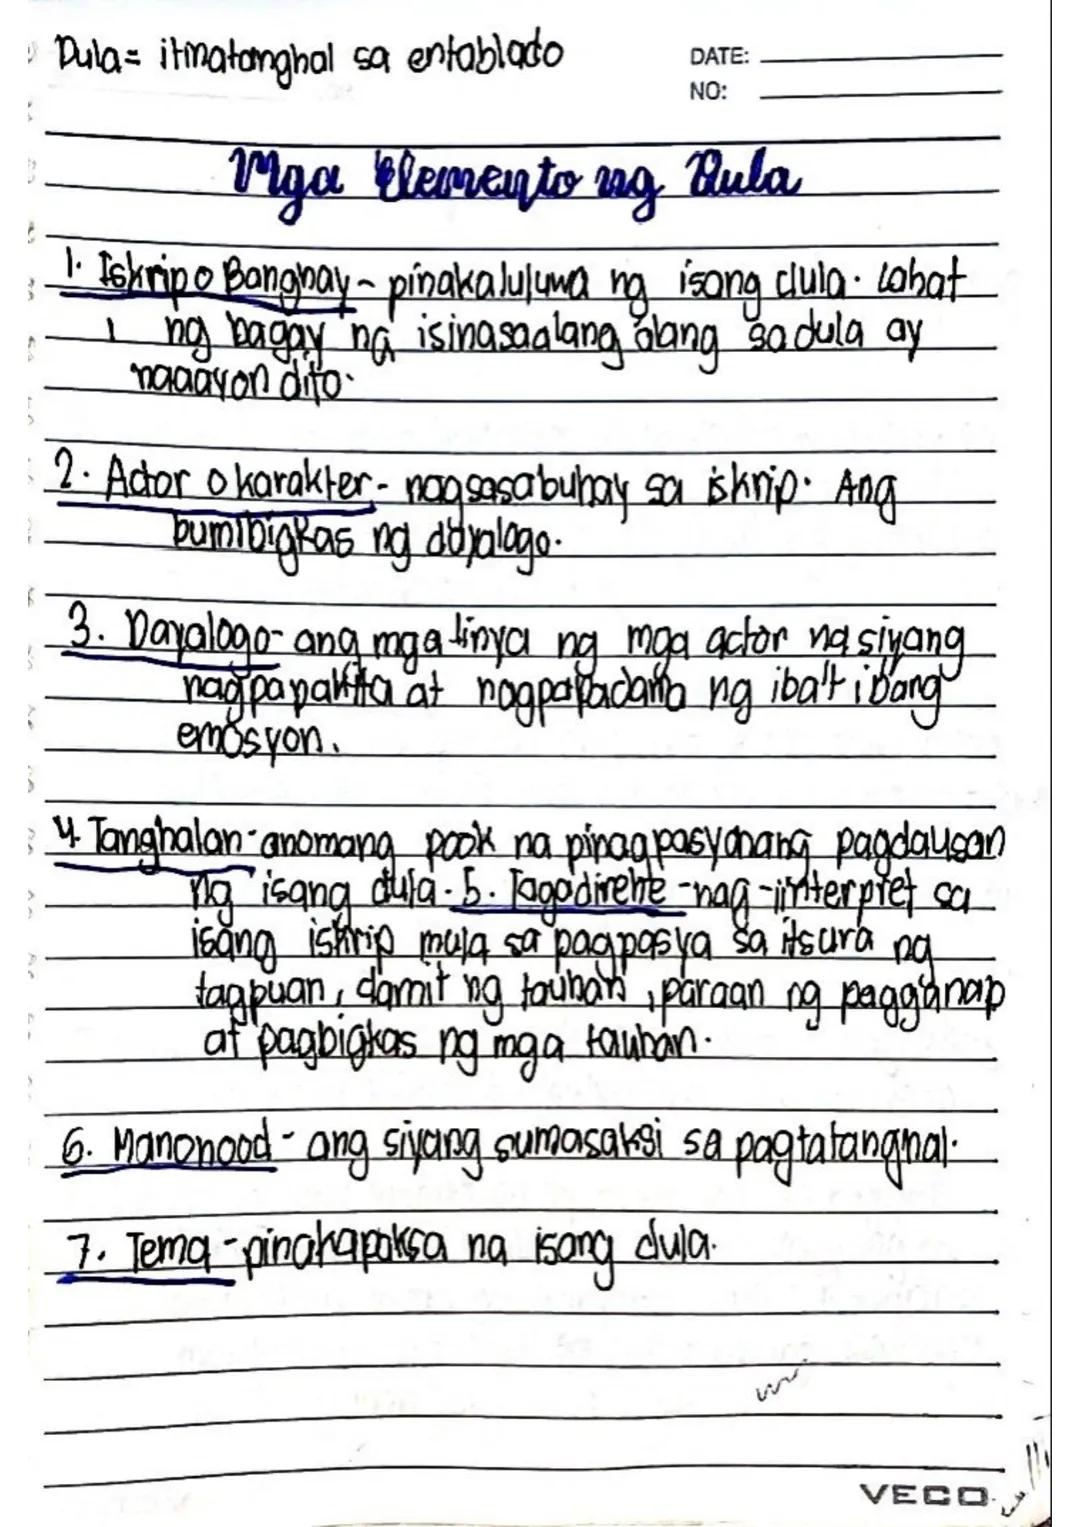 Dula = itinatanghal sa entablado
DATE:
NO:
Mga Elemento ng Dula
1. Iskrip o Banghay - pinakaluluwa ng isang dula. Lahat
ng bagay na isinasaalang alang sa dula ay
naaayon dito.
2. Actor o karakter - nagsasabuhay sa iskrip. Ang
bumibigkas ng dayalogo.
3. Dayalogo - ang mga linya ng mga actor na siyang
nagpapakita at nagpapadama ng iba't ibang
emosyon.
4. Tanghalan - anomang pook na pinagpasyahang pagdausan
ng isang dula. 5. Tagadirehe - nag-iinterpret sa
isang iskrip mula sa pagpasya sa itsura ng
tagpuan, damit ng tauhan, paraan ng pagganap
at pagbigkas ng mga tauhan.
6. Manonood - ang siyang sumasaksi sa pagtatanghal.
7. Tema - pinakapaksa na isang dula.
VECO